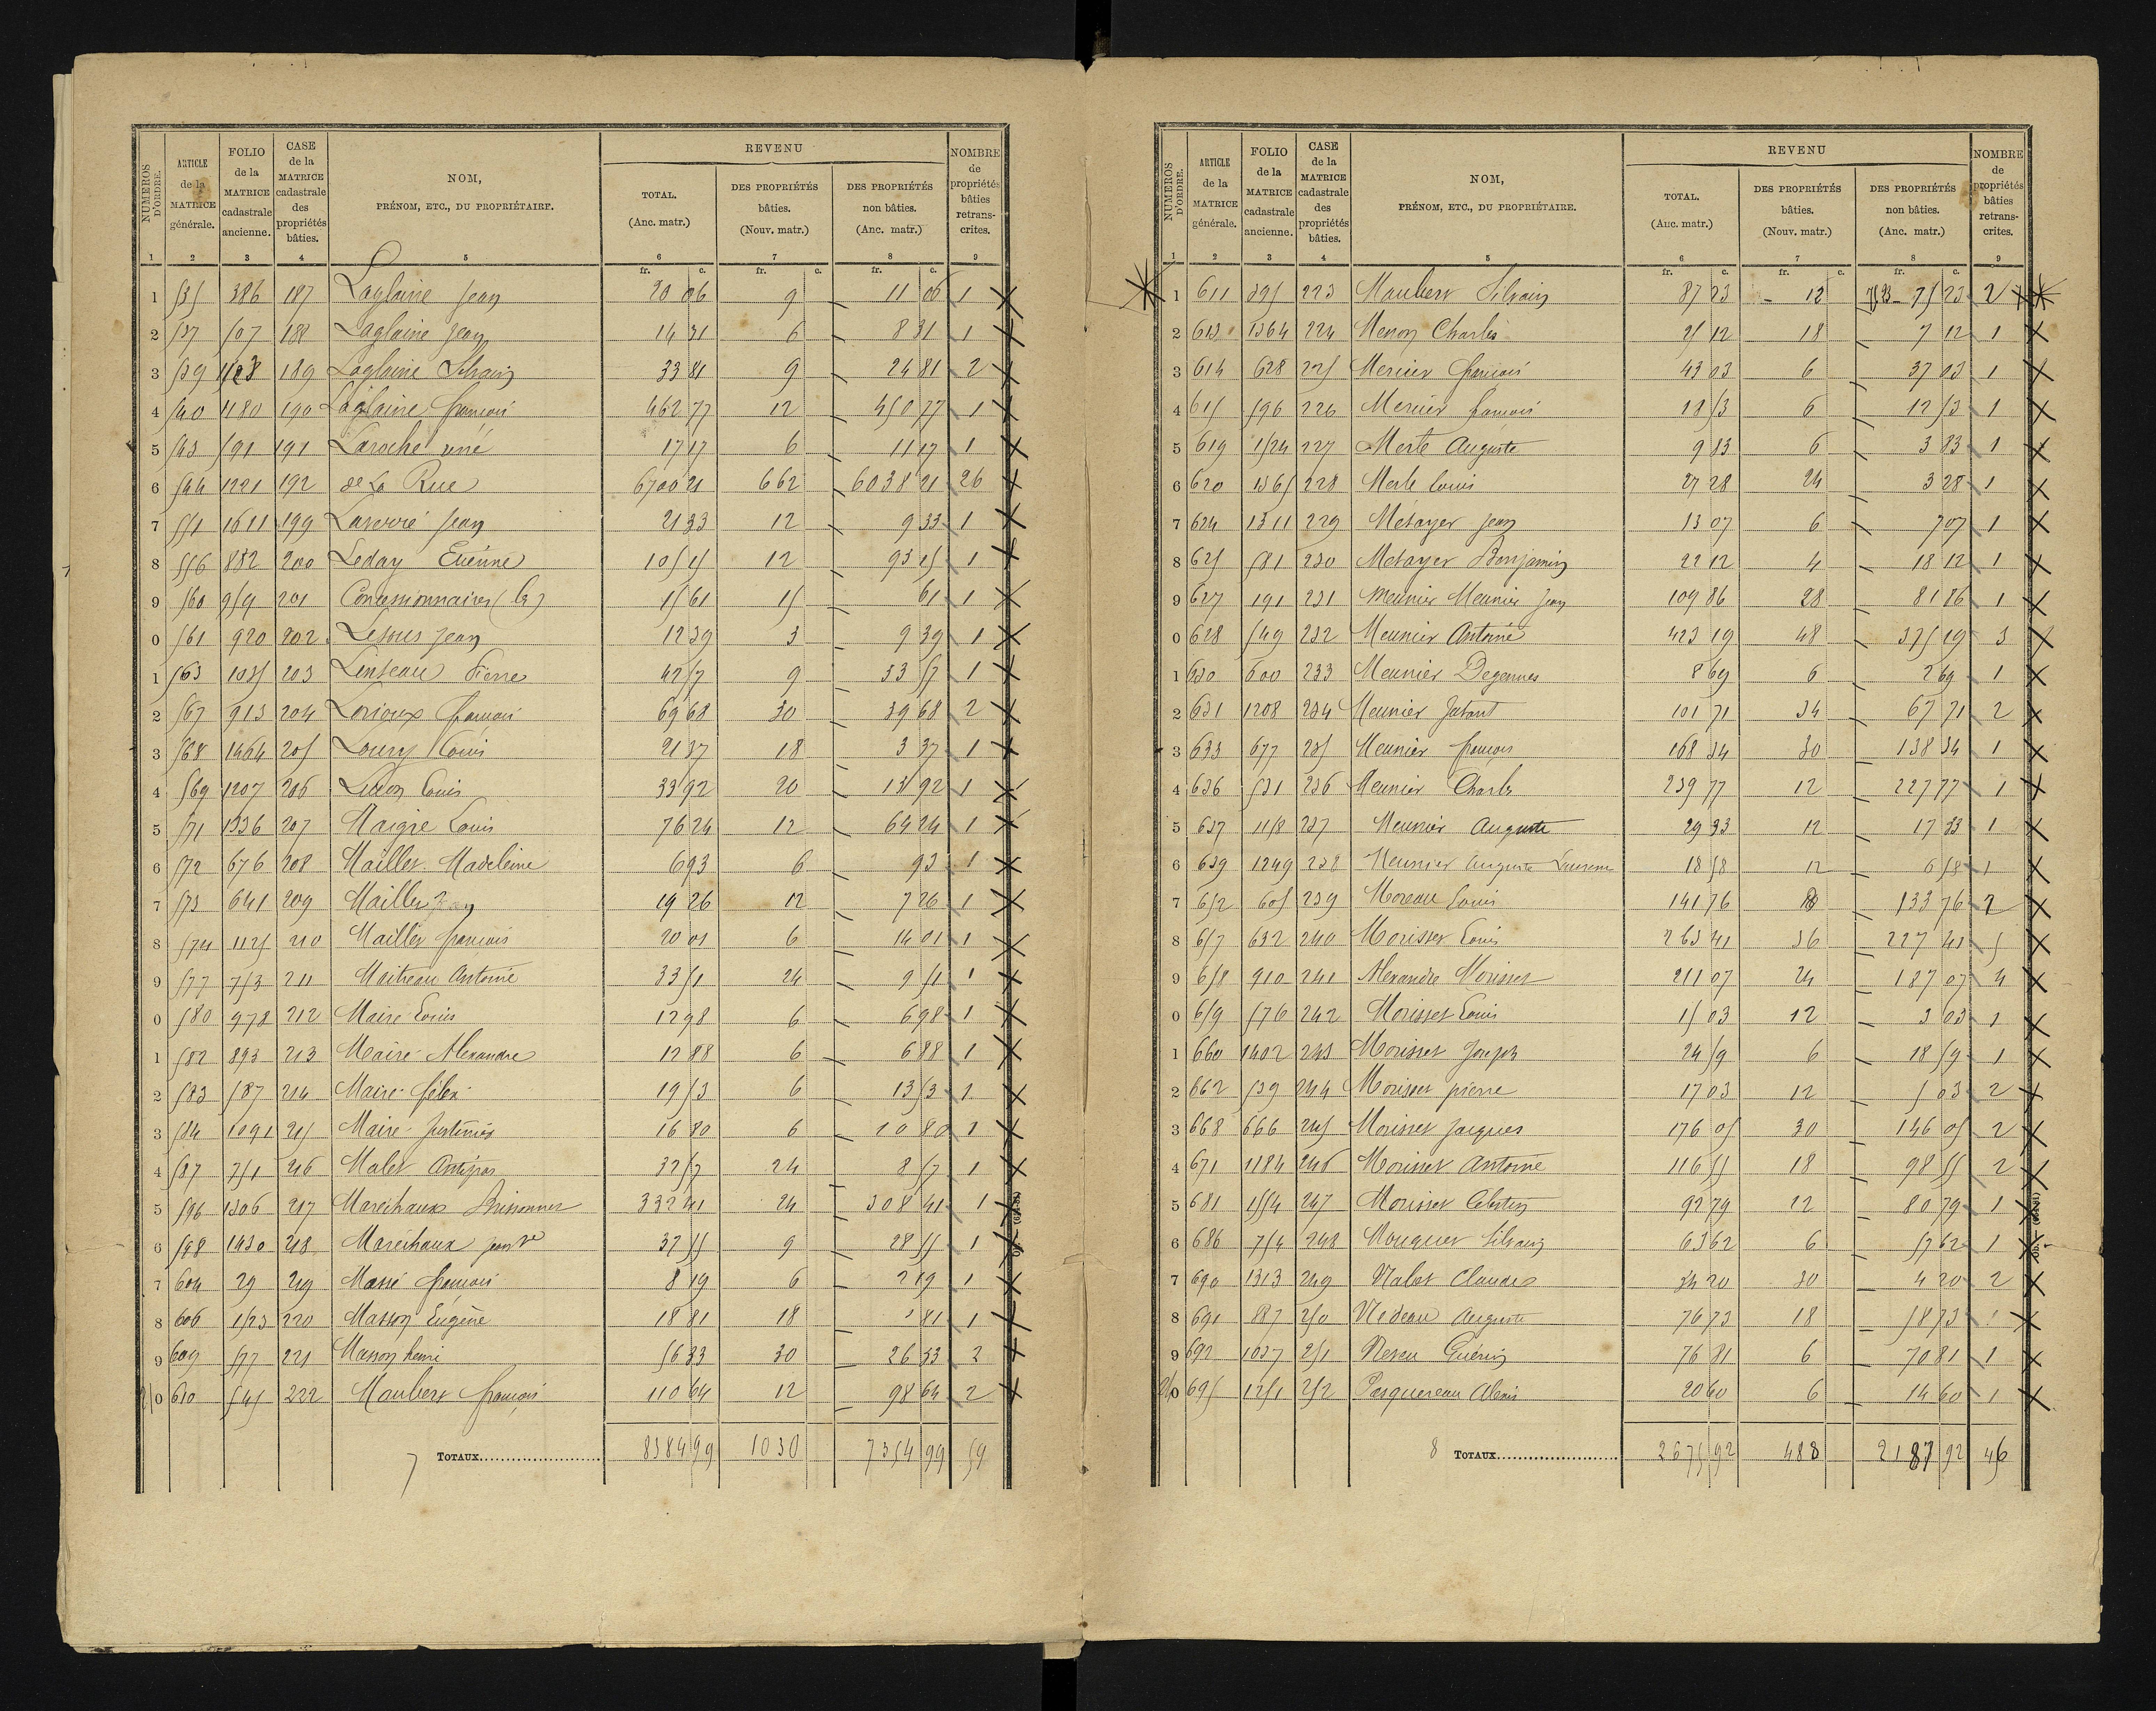 NUMÉROS D'ORDRE. ARTICLE de la MATRICE générale. FOLIO de la MATRICE cadastrale ancienne. CASE de la MATRICE cadastrale des propriétés bâties. NOM, PRÉNOM, ETC., DU PROPRIÉTAIRE. REVENU TOTAL. (Anc. matr.) DES PROPRIÉTÉS bâties. (Nouv. matr.) DES PROPRIÉTÉS non bâties. (Anc. matr.) NOMBRE de propriétés bâties retrans-crites.
1 2 3 4 5 6 7 8 9
fr. c. fr. c. fr. c.
1 535 386 187 Laglaine Jean 20 06 9 11 06 1
2 537 507 188 Laglaine Jean 14 31 6 8 31 1
3 539 189 Laglaine Silvain 33 81 9 24 81 2
4 540 1180 190 Laglaine françois 462 77 12 450 77 1
5 543 591 191 Laroche réné 17 17 6 11 17 1
6 544 1221 192 de La Rue 6700 21 662 6038 21 26
7 551 1611 199 Jean 21 33 12 9 33 1
8 556 882 200 Leday Etienne 105 15 12 93 15 1
9 560 959 201 Concessionnaires (les) 15 61 15 61 1
0 561 920 202 Lesous Jean 12 39 3 9 39 1
1 563 1035 203 Linseau Pierre 42 57 9 33 57 1
2 567 913 204 Lorioux françois 69 68 30 39 68 2
3 568 1464 205 Loury Louis 21 37 18 3 37 1
4 569 1207 206 Louis 33 92 20 13 92 1
5 571 1336 207 Maigre Louis 76 24 12 64 24 1
6 572 676 208 Maillet Madeleine 6 93 6 93 1
7 573 641 209 Maillet Jean 19 26 12 7 26 1
8 574 1125 210 Maillet françois 20 01 6 14 01 1
9 577 753 211 Maitreau Antoine 33 51 24 9 51 1
0 580 978 212 Maire Louis 12 98 6 6 98 1
1 582 893 213 Maire Alexandre 12 88 6 6 88 1
2 583 587 214 Maire félix 19 53 6 13 53 1
3 584 1091 215 Maire Justinien 16 80 6 10 80 1
4 587 751 216 Malet Antipas 32 57 24 8 57 1
5 596 1306 217 Maréchaux Brissonnet 332 41 24 308 41 1
6 598 1430 218 Maréchaux Jean 37 55 9 28 55 1
7 604 29 219 Massé françois 8 19 6 2 19 1
8 606 1523 220 Masson Eugène 18 81 18 81 1
9 609 577 221 Masson henri 56 33 30 26 33 2
210 610 545 222 Maubert françois 110 64 12 98 64 2
7 TOTAUX 8384 99 1030 7354 99 59
NUMÉROS D'ORDRE. ARTICLE de la MATRICE générale. FOLIO de la MATRICE cadastrale ancienne. CASE de la MATRICE cadastrale des propriétés bâties. NOM, PRÉNOM, ETC., DU PROPRIÉTAIRE. REVENU TOTAL. (Anc. matr.) DES PROPRIÉTÉS bâties. (Nouv. matr.) DES PROPRIÉTÉS non bâties. (Anc. matr.) NOMBRE de propriétés bâties retrans-crites.
1 2 3 4 5 6 7 8 9
fr. c. fr. c. fr. c.
1 611 595 223 Maubert Silvain 87 23 12 75 23 2
2 613 1364 224 Menon Charles 25 12 18 7 12 1
3 614 628 225 Mercier françois 43 03 6 37 03 1
4 615 596 226 Mercier françois 18 53 6 12 53 1
5 619 1524 227 Merle Auguste 9 83 6 3 83 1
6 620 1365 228 Merle Louis 27 28 24 3 28 1
7 624 1311 229 Metayer Jean 13 07 6 7 07 1
8 625 581 230 Metayer Benjamin 22 12 4 18 12 1
9 627 191 231 Meunier Meunier Jean 109 86 28 81 86 1
0 628 549 232 Meunier Antoine 423 19 48 375 19 3
1 630 600 233 Meunier Degennes 8 69 6 2 69 1
2 631 1208 234 Meunier Jutant 101 71 34 67 71 2
3 633 677 235 Meunier françois 168 34 30 138 34 1
4 636 531 236 Meunier Charles 239 77 12 227 77 1
5 637 1158 237 Meunier Auguste 29 33 12 17 33 1
6 639 1249 238 Meunier Auguste 18 58 12 6 58 1
7 652 605 239 Moreau Louis 141 76 8 133 76 2
8 657 632 240 Morisset Louis 263 41 36 227 41 5
9 658 910 241 Alexandre Morisset 211 07 24 187 07 4
0 659 576 242 Morisset Louis 15 03 12 3 03 1
1 660 1402 243 Morisset Joseph 24 59 6 18 59 1
2 662 539 244 Morisset pierre 17 03 12 5 03 2
3 668 666 245 Morisset Jacques 176 05 30 146 05 2
4 671 1184 246 Morisset Antoine 116 55 18 98 55 2
5 681 1554 247 Morisset Célestin 92 79 12 80 79 1
6 686 754 248 Mouquet Silvain 63 62 6 57 62 1
7 690 1313 249 Nalet Claude 34 20 30 4 20 2
8 691 887 250 Nedeau Auguste 76 73 18 58 73 1
9 692 1037 251 Neveu Guérin 76 81 6 70 81 1
240 695 1251 252 Pasquereau Alexis 20 60 6 14 60 1
8 TOTAUX 2675 92 488 2187 92 46